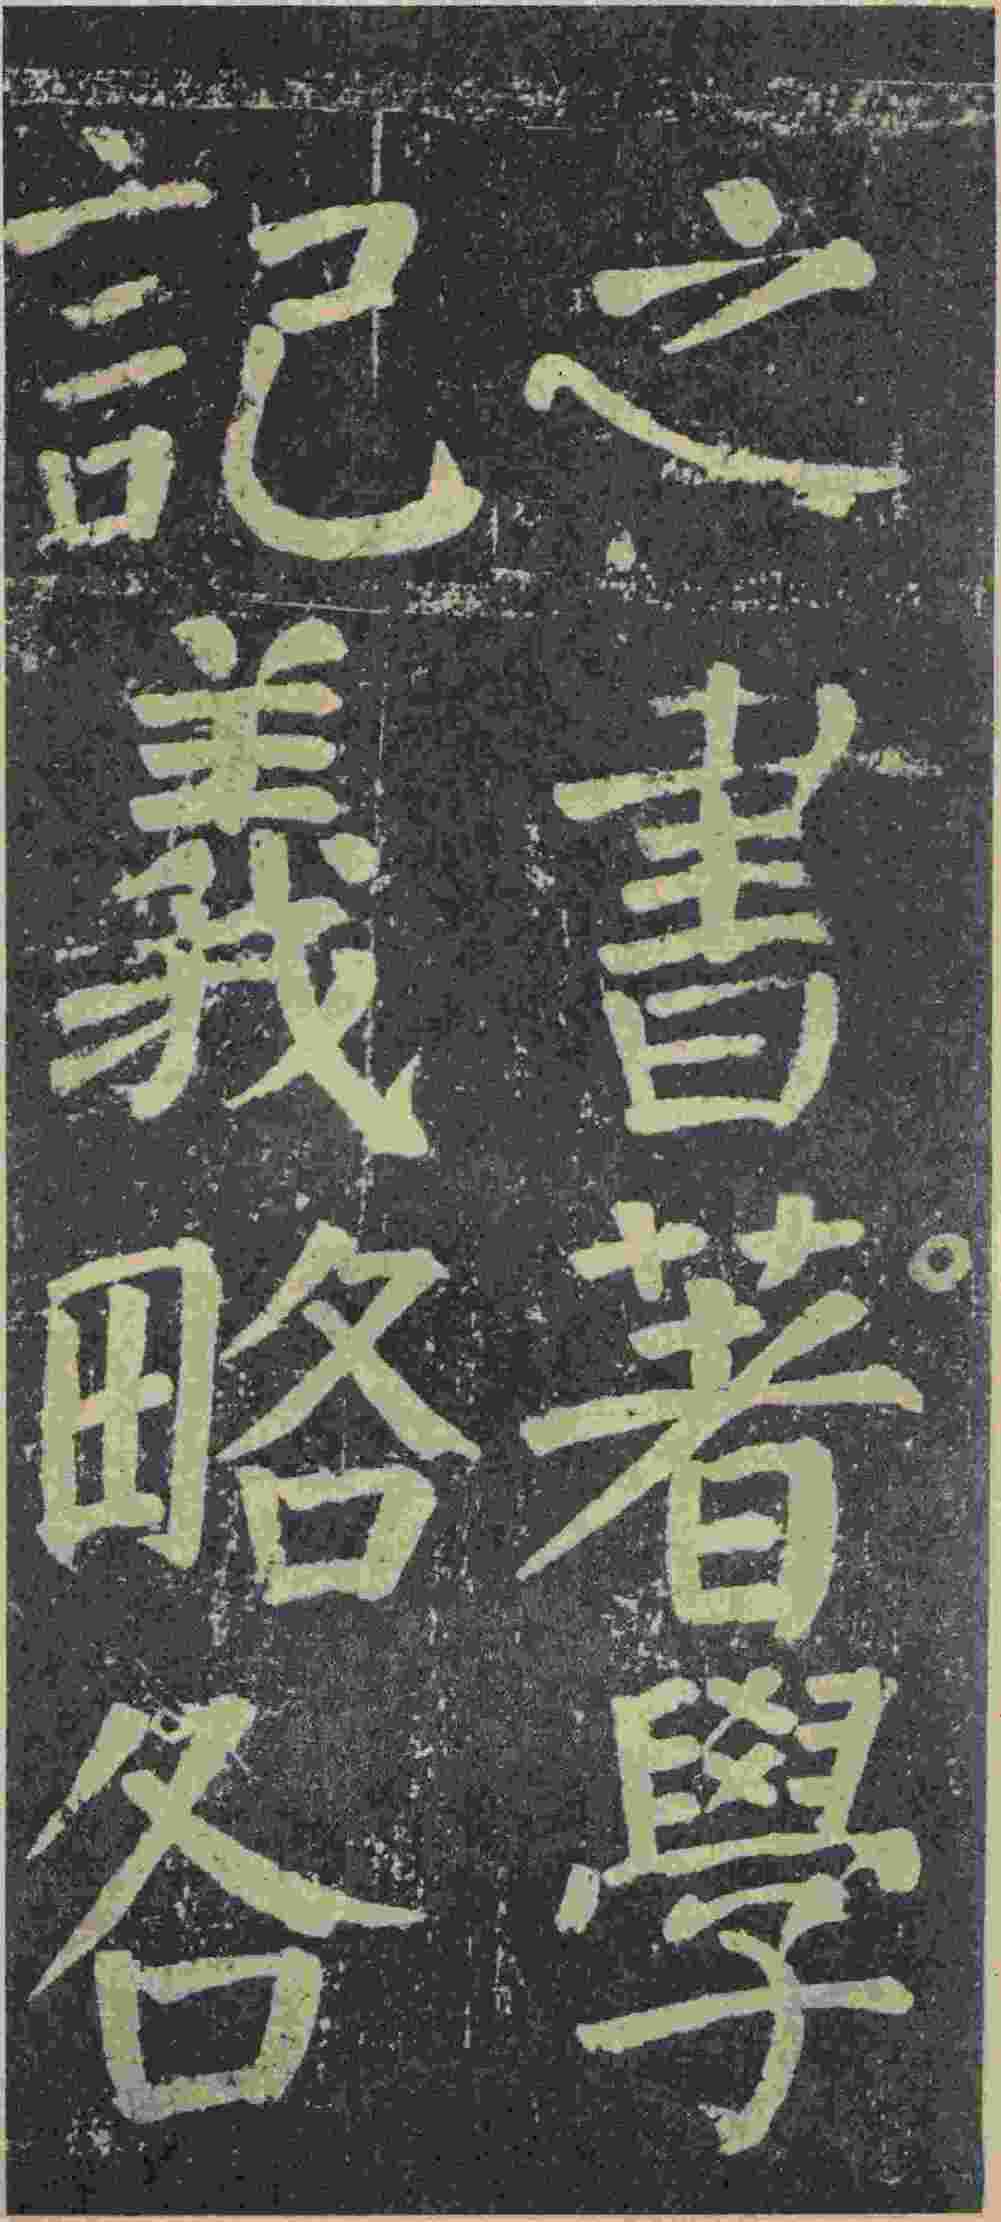 之書著學
記義略各